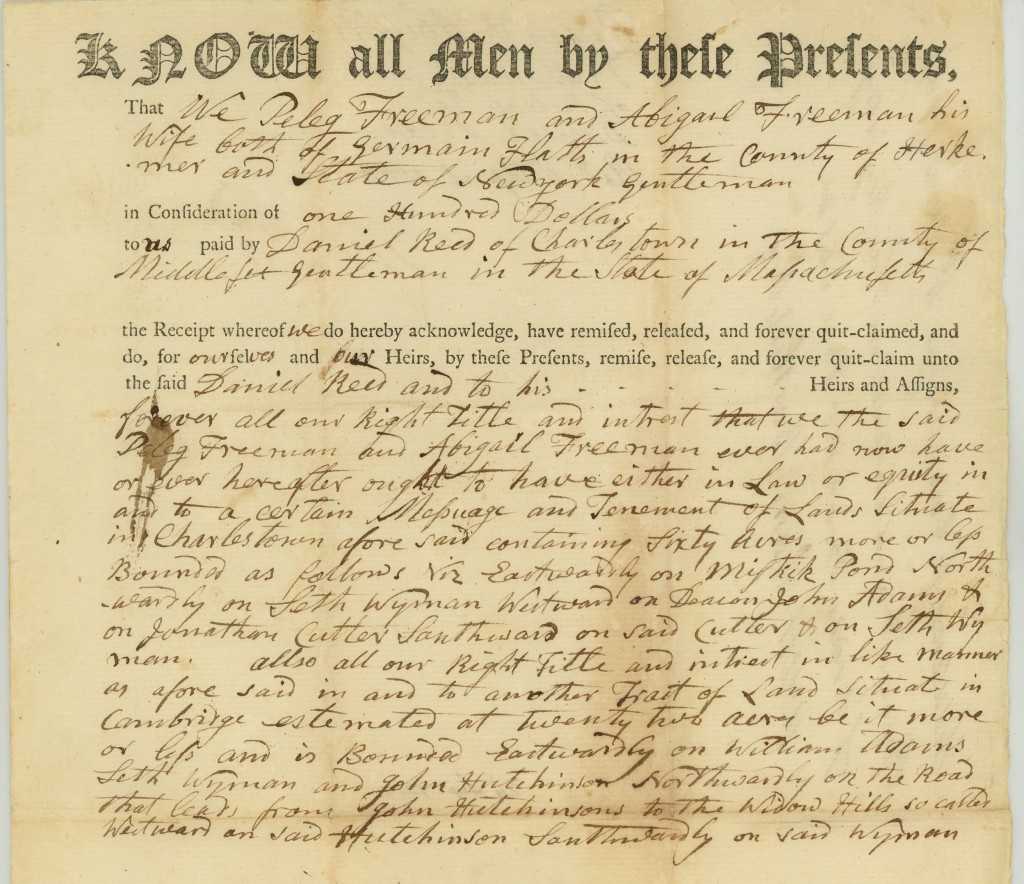 KNOW all Men by theſe Preſents,
That We Peleg Freeman and Abigail Freeman his
Wife both of Germain Flatts in the County of Herke
mer and State of Newyork Gentleman
in Conſideration of one Hundred Dollars
to us paid by Daniel Reed of Charlestown in the County of
Middlesex Gentleman in the State of Maſsachuſetts
the Receipt whereof we do hereby acknowledge, have remiſed, releaſed, and forever quit-claimed, and
do, for ourselves and our Heirs, by theſe Preſents, remiſe, releaſe, and forever quit-claim unto
the ſaid Daniel Reed and to his - - - - - Heirs and Aſſigns,
forever all our Right Title and intrest that we the said
Peleg Freeman and Abigail Freeman ever had now have
or ever hereafter ought to have either in Law or equity in
and to a certain Meſsuage and Tenement of Lands Situate
in Charlestown afore said containing Sixty acres more or leſs
Bounded as follows Viz Eastwardly on Mistick Pond North
-wardly on Seth Wyman Westward on Deacon John Adams &
on Jonathan Cutler Southward on said Cutler & on Seth Wy
man. allso all our Right Title and intrest in like manner
as afore said in and to another Tract of Land Situate in
Cambridge estemated at twenty two acres be it more
or leſs and is Bounded Eastwardly on William Adams
Seth Wyman and John Hutchinson Northwardly on the Road
that leads from John Hutchinsons to the Widow Hills so called
Westward on said Hutchinson Southwardly on said Wyman